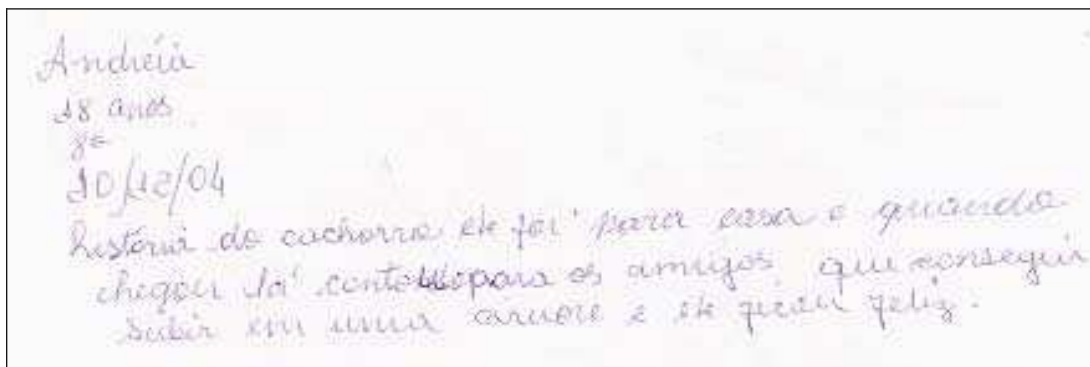 Andréia
18 anos
8ª
10/12/04
história do cachorro ele foi para casa e quando
chegou lá contou para os amigos que conseguiu
subir em uma arvore e ele ficou feliz.